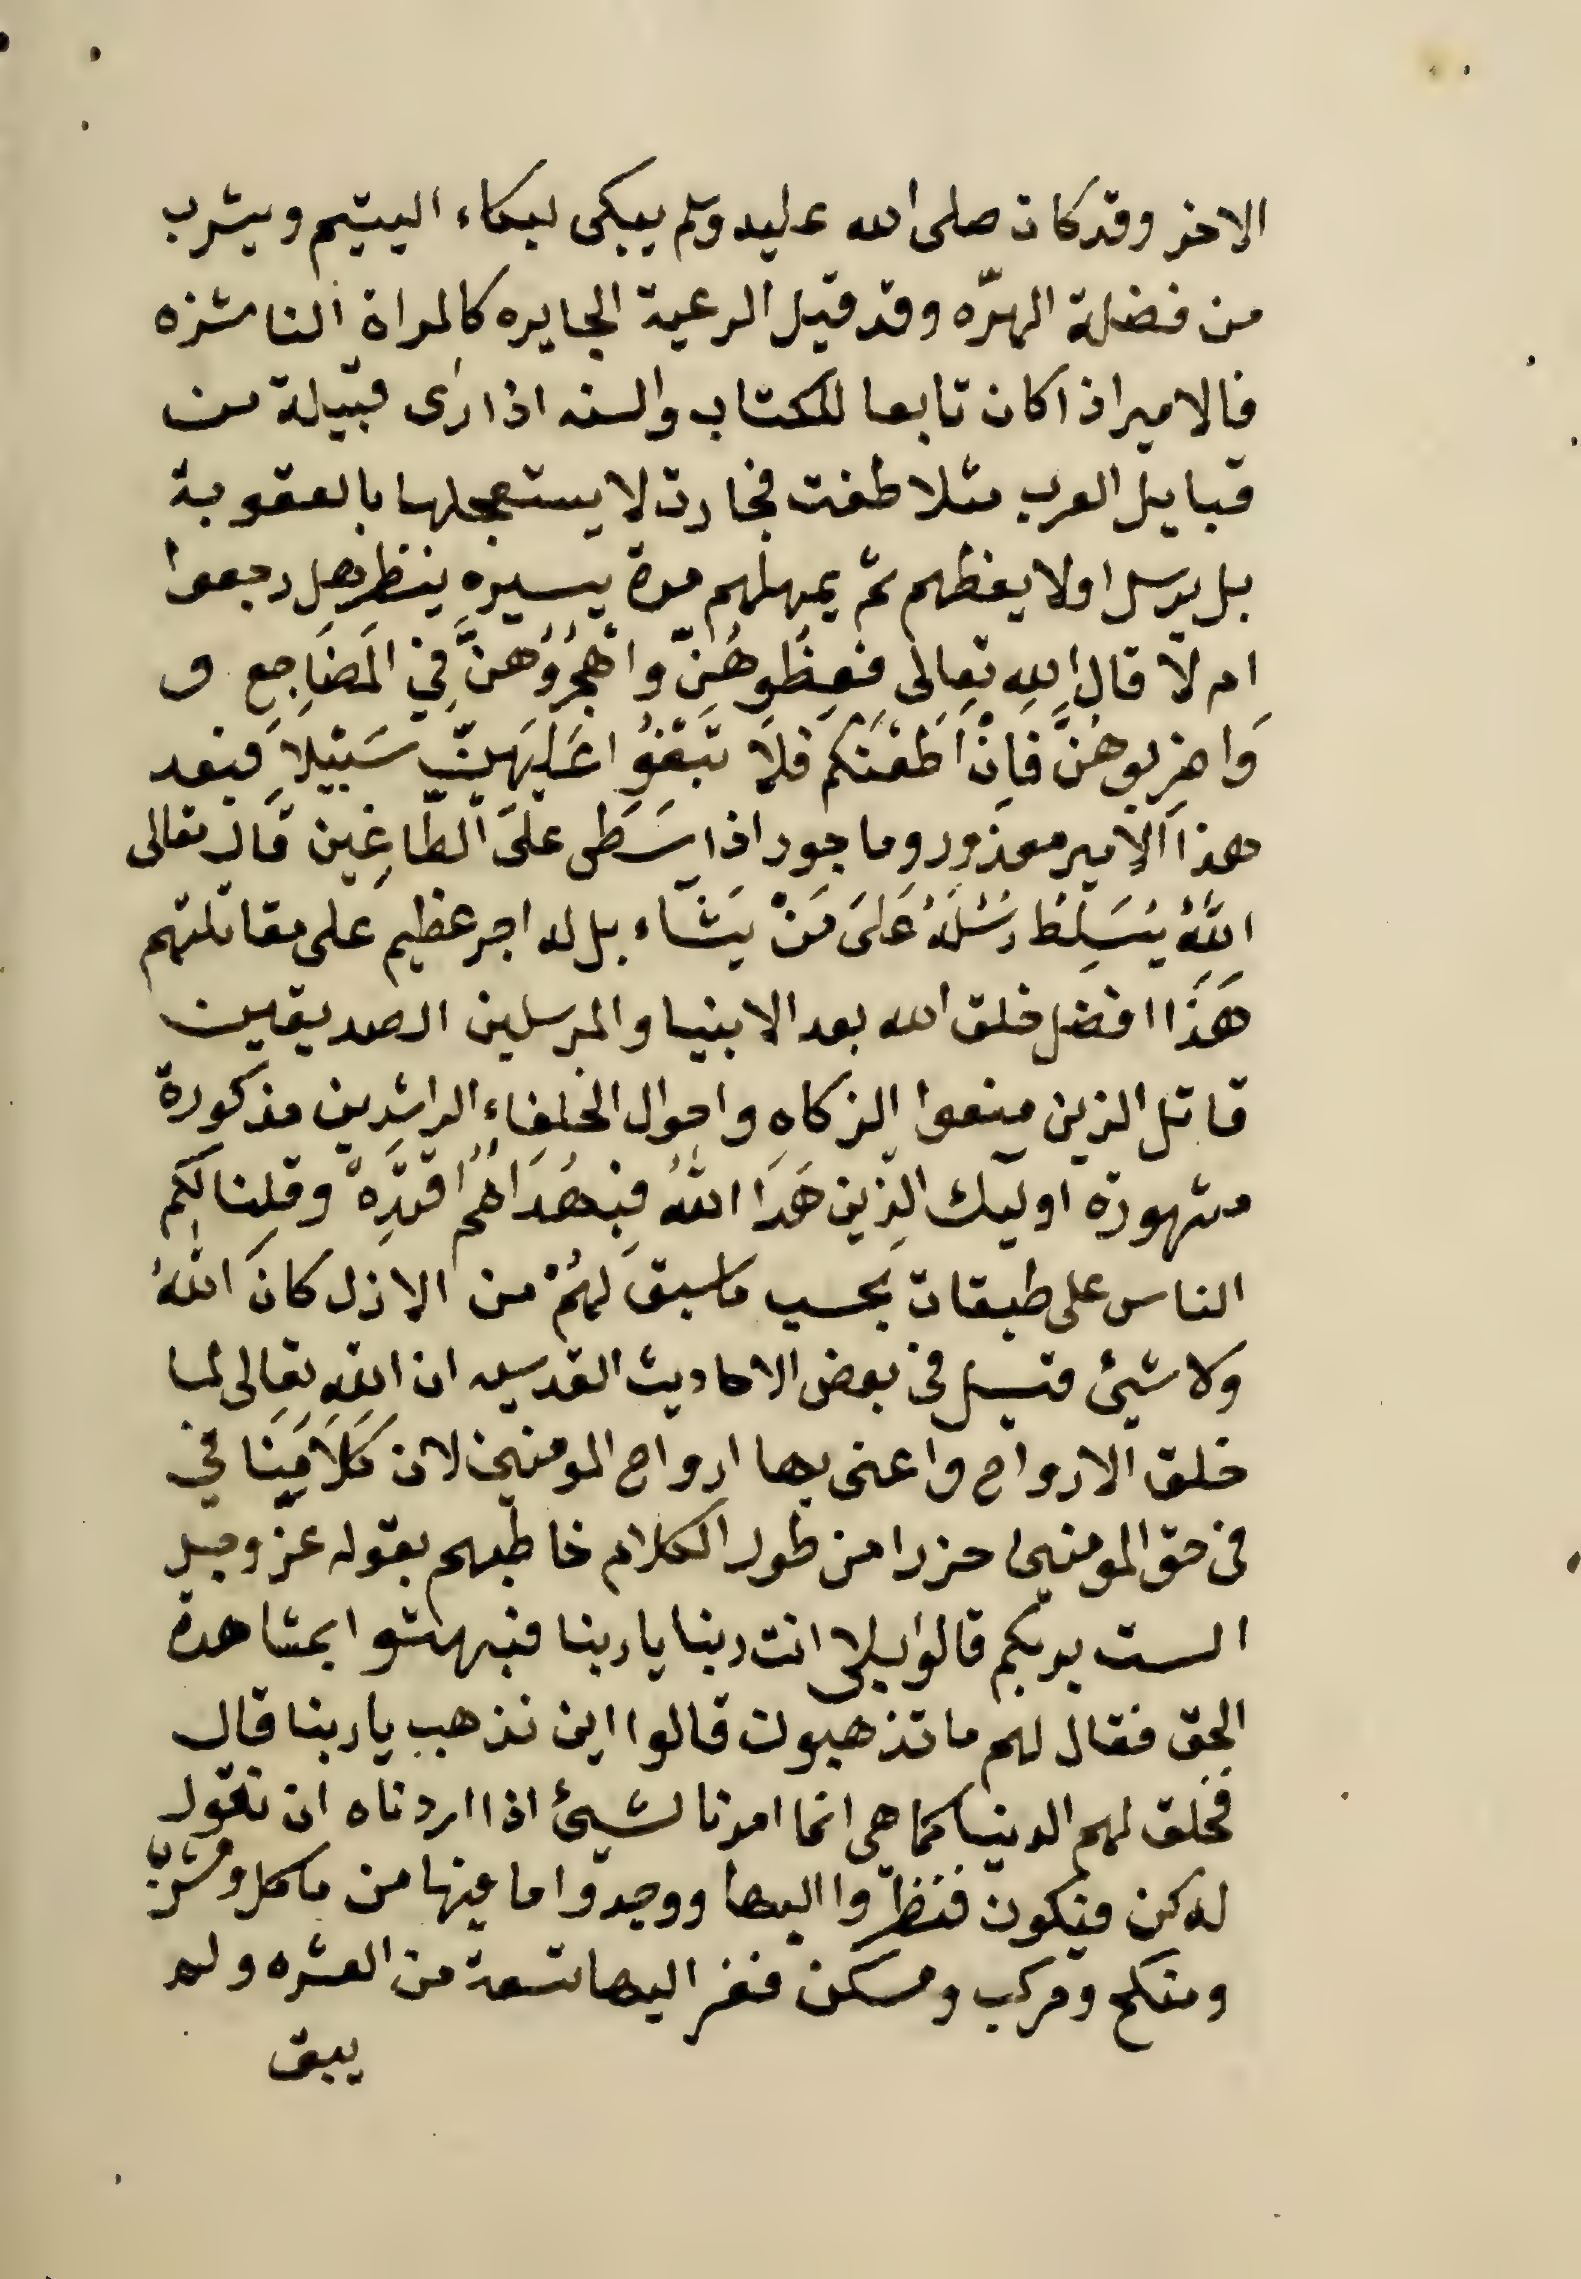 الاخر وقد كان صلى الله عليه وسلم يبكى لبكاء اليتيم ويشرب
من فضلة الهرّه وقد قيل الرعية الجايره كالمراة الناشزه
فالامير اذا كان تابعا للكتاب والسنه اذا رٱى قبيلة من
قبايل العرب مثلا طغت فجارت لا يستعجلها بالعقوبة
بل يرسل اولا يعظهم ثمّ يمهلهم مدة يسيره ينظر هل رجعوا
ام لا قال الله تعالى فعِظُوهُنّ واهْجُرُوُهنَّ فِي المَضَاجِع و
وَاضرِبوهُنَّ فَاِنْ اَطَعْنَكُم فلَا تَبْغُوُا عَلَيهَنّ سَبَيْلاً فبعد
هذا الامير معذور وماجور اذا سَطى علىَ الطّاغِين قال تعالى
اللَّهُ يُسَلِّطُ رُسُلَهُ عَلىَ مَنْ يَشَاء بل له اجر عظيم على مقاتلتهم
هَذَا افضل خلق الله بعد الانبيا والمرسلين الصديقين
قاتل الذين منعوا الزكاه واحوال الخلفاء الراشدين مذكورة
مشهورة اوليك الذِين هَدَا اللهُ فبِهُدَاهُمُ اقتَدِهْ وقلنا لكم
الناس على طبقات بحسب ماسبق لهُمْ من الازل كانَ اللهُ
ولا شيئ قبل فى بعض الاحاديث القدسيه ان الله تعالى لما
خلق الارواح واعنى بها ارواح المومنين لان كَلَامَنَا في
فى حق المومنين حزرا من طول الكلام خاطبهم بقوله عز وجل
الست بربكم قالوا بلى انت ربنا يا ربنا فبهتوا بمشاهدة
الحق فقال لهم ما تذهبون قالوا اين نذهب يا ربنا قال
فخلق لهم الدنيا كما هى انما امرنا لشيئ اذا اردناه ان نقول
له كن فيكون فنظروا اليها ووجدوا ما فيها من ماكل ومشرب
ومنكح ومركب ومسكن ففر اليها تسعة من العشره ولم
يبق